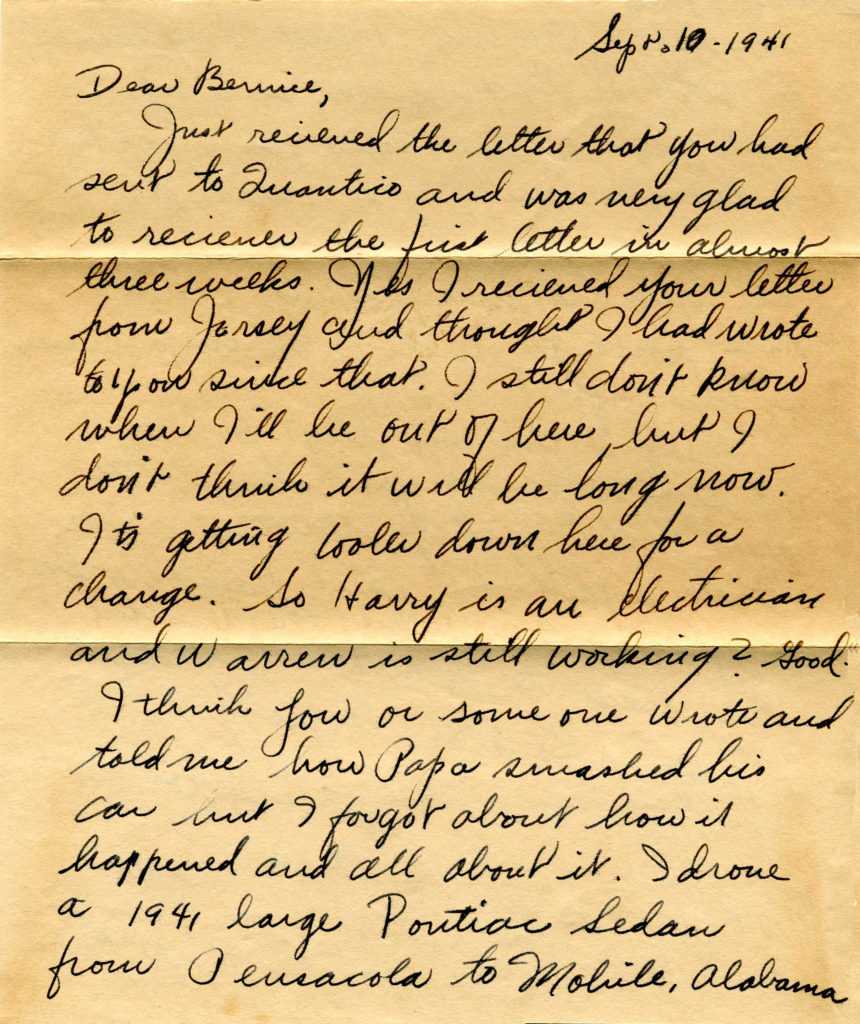 Sept. 10 - 1941
Dear Bernice,
Just recieved the letter that you had
sent to Quantico and was very glad
to reciever the first letter in almost
three weeks. Yes I recieved your letter
from Jersey and thought I had wrote
to you since that. I still don't know
when I'll be out of here, but I
don't think it will be long now.
It's getting cooler down here for a
change. So Harry is an electrician
and Warren is still working? Good.
I think you or some one wrote and
told me how Papa smashed his
car but I forgot about how it
happened and all about it. I drove
a 1941 large Pontiac Sedan
from Pensacola to Mobile, Alabama